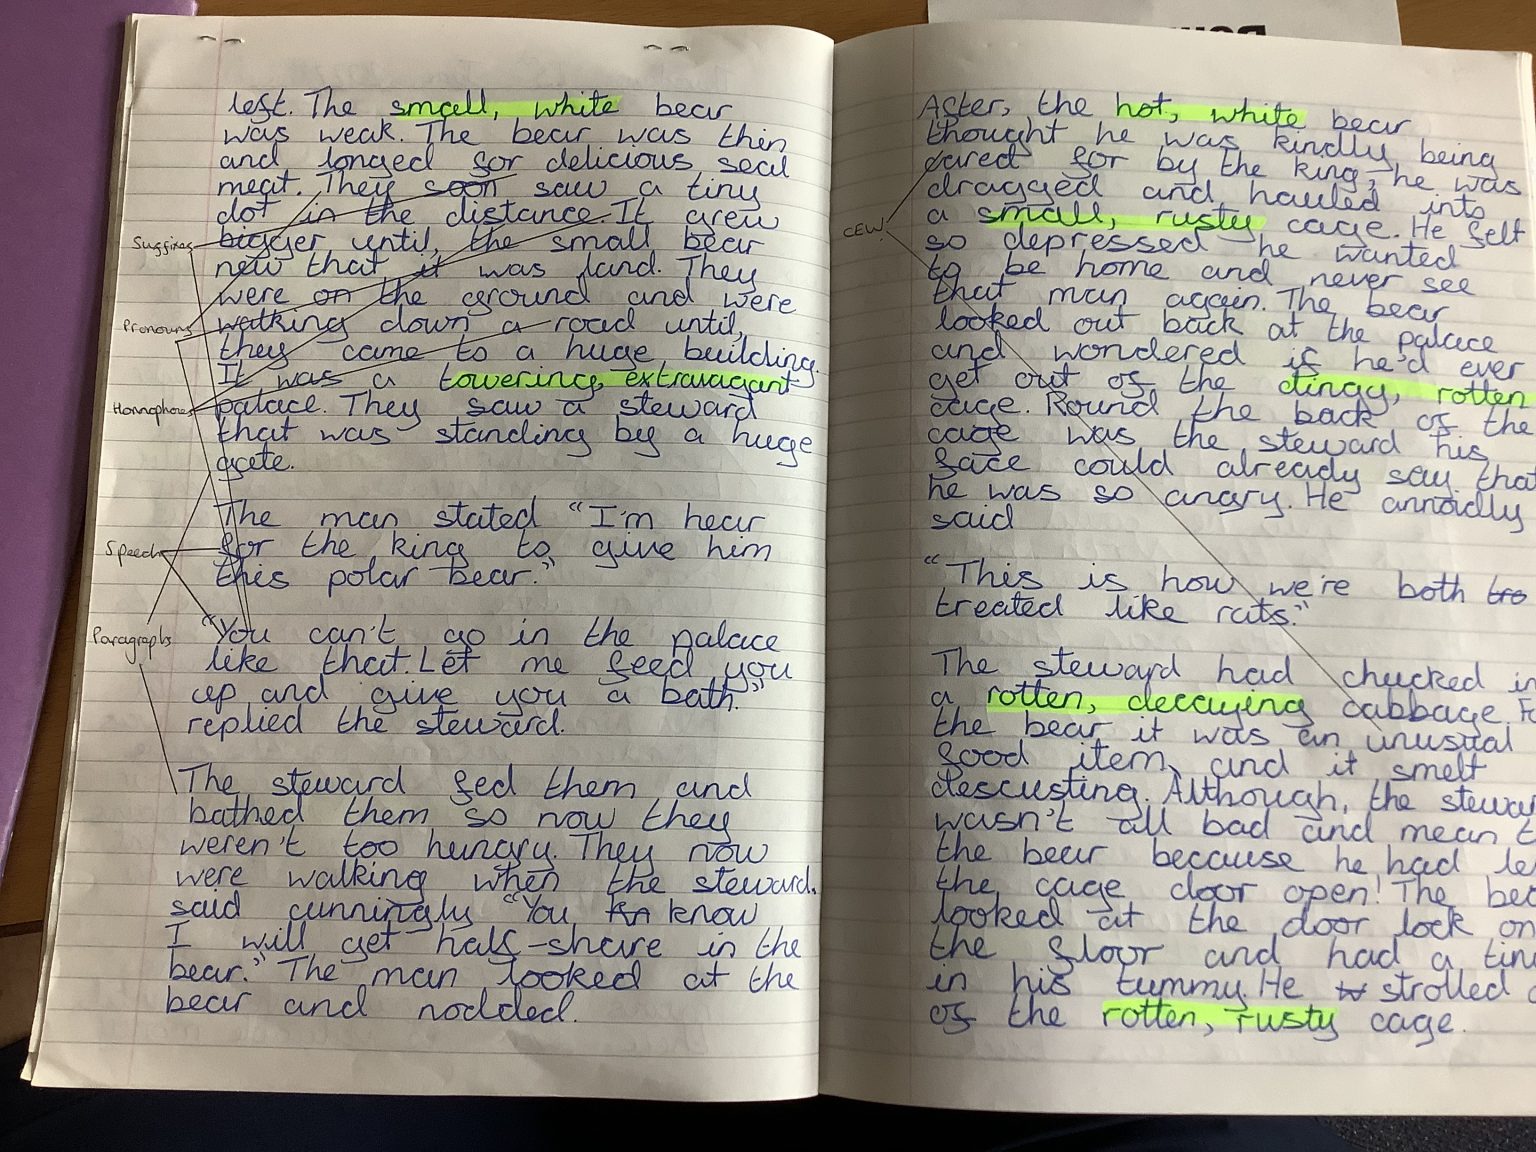 left. The small, white bear
was weak. The bear was thin
and longed for delicious seal
meat. They soon saw a tiny
dot in the distance. It grew
bigger until, the small bear
new that it was land. They
were on the ground and were
walking down a road until,
they came to a huge building.
It was a towering, extravagant
palace. They saw a steward
that was standing by a huge
gate.
The man stated "I'm hear
for the king to give him
this polar bear."
"You can't go in the palace
like that. Let me feed you
up and give you a bath."
replied the steward.
The steward fed them and
bathed them so now they
weren't too hungry. They now
were walking when the steward.
said cunningly "You know
I will get half-share in the
bear." The man looked at the
bear and nodded.
Suffixes
Pronouns
Homophones
Speech
Paragraphs
After, the hot, white bear
thought he was kindly being
cared for by the king, he was
dragged and hauled into
a small, rusty cage. He felt
so depressed he wanted
to be home and never see
that man again. The bear
looked out back at the palace
and wondered if he'd ever
get out of the dingy, rotten
cage. Round the back of the
cage was the steward his
face could already say that
he was so angry. He annoidly
said
"This is how we're both tre
treated like rats."
The steward had chucked in
a rotten, decaying cabbage.
the bear it was an unusual
food item, and it smelt
descusting. Although, the
wasn't all bad and mean
the bear because he had
the cage door open! The
looked at the door lock on
the floor and had a
in his tummy. He strolled
of the rotten, rusty cage.
CEW